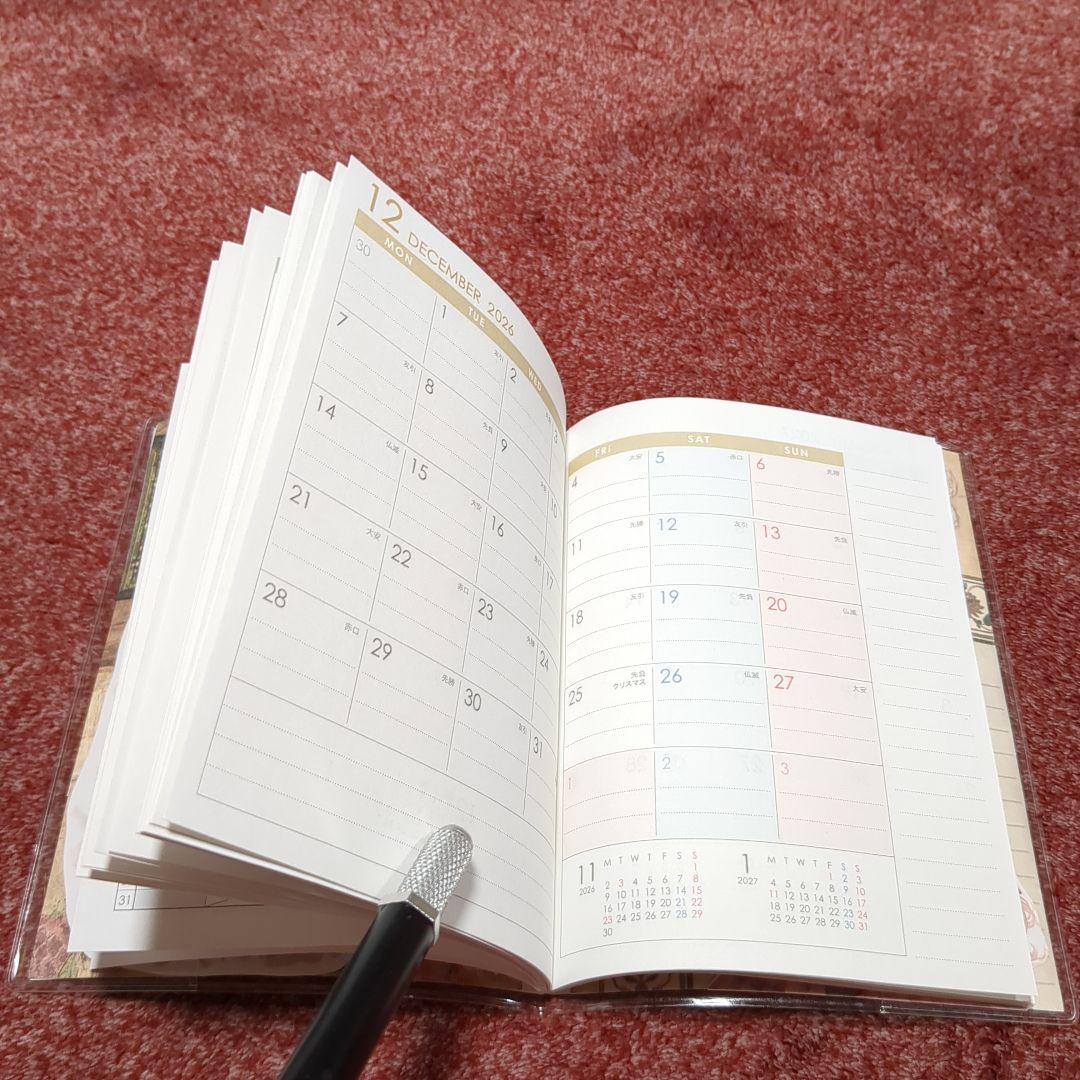 12 DECEMBER 2026
MON TUE WED
30 1 友引 2 3
7 友引 8 先負 9 大安 10
14 仏滅 15 大安 16 赤口 17
21 大安 22 赤口 23 先勝 24
28 赤口 29 先勝 30 友引 31
FRI SAT SUN
4 大安 5 赤口 6 先勝
11 先勝 12 友引 13 先負
18 友引 19 先負 20 仏滅
25 先負 クリスマス 26 仏滅 27 大安
1 2 3
11 2026
M T W T F S S
1
2 3 4 5 6 7 8
9 10 11 12 13 14 15
16 17 18 19 20 21 22
23 24 25 26 27 28 29
30
1 2027
M T W T F S S
1 2 3
4 5 6 7 8 9 10
11 12 13 14 15 16 17
18 19 20 21 22 23 24
25 26 27 28 29 30 31
31